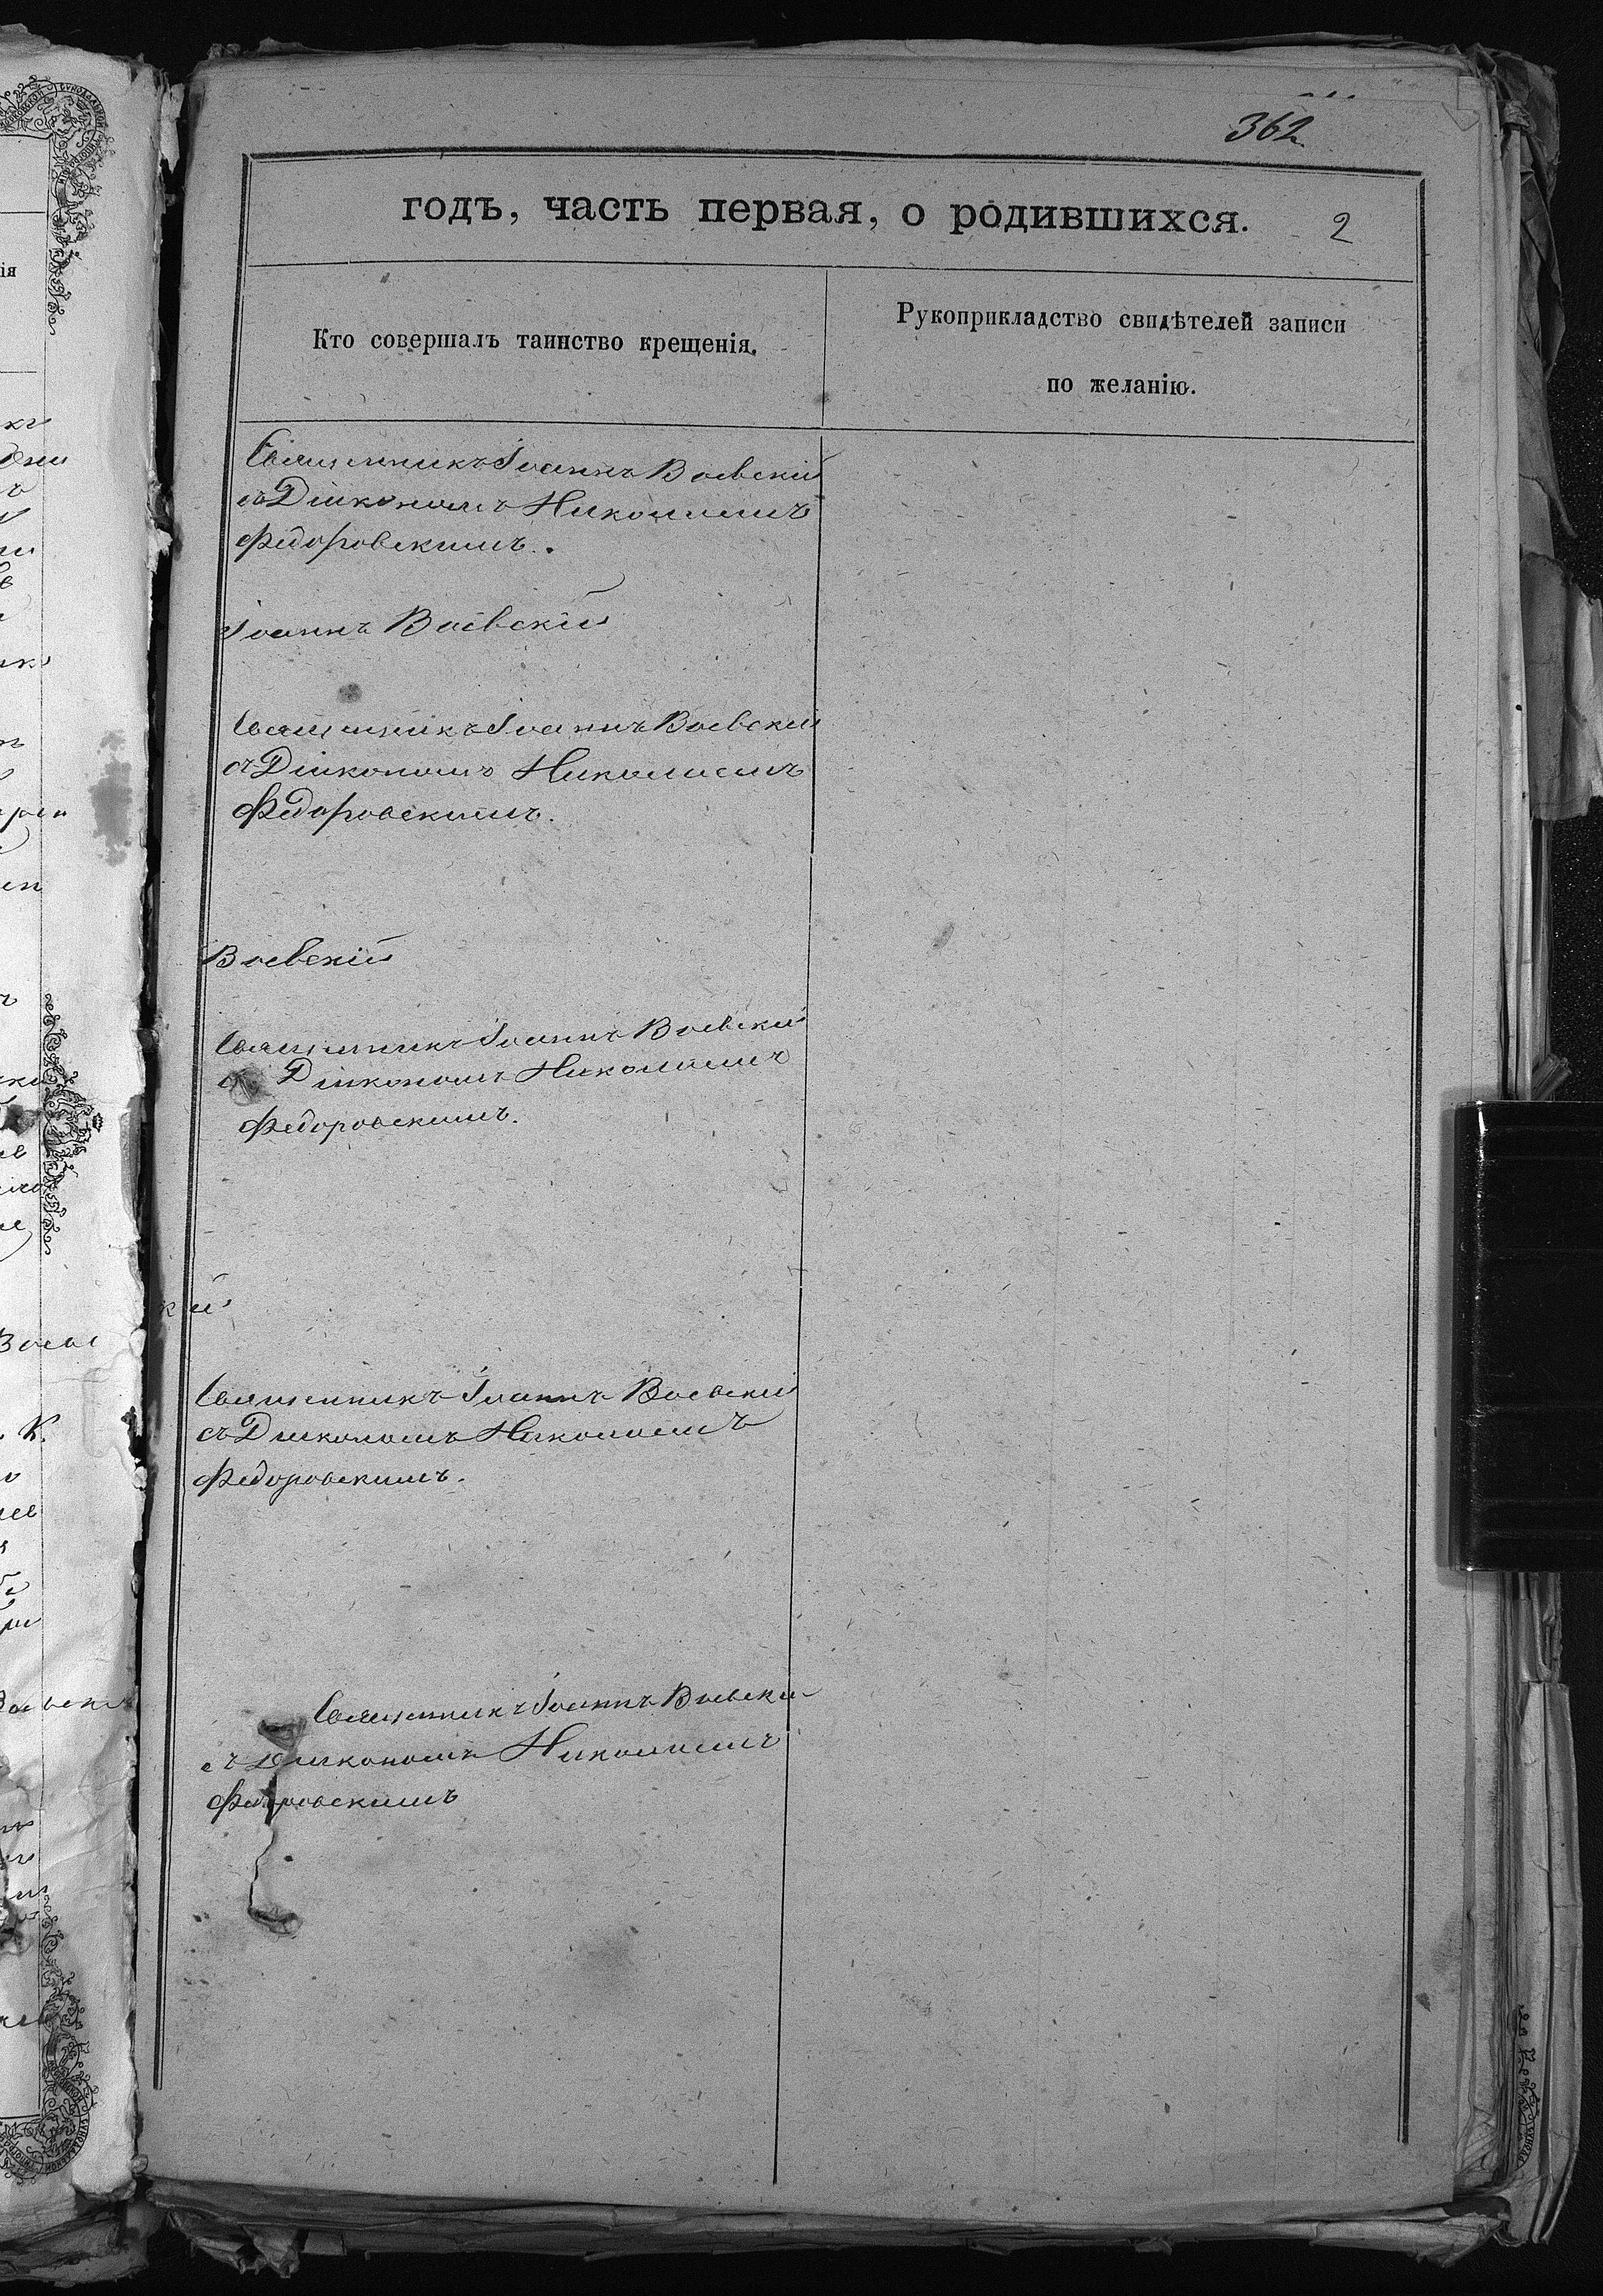 362
годъ, часть первая, о родившихся. 2
Кто совершалъ таинство крещенія.
Рукоприкладство свидѣтелей записи
по желанію.
Священникъ Іоаннъ Воевскій
съ Діакономъ Николаемъ
Федоровскимъ.
Іоаннъ Воевскій
Священникъ Іоаннъ Воевскій
съ Діакономъ Николаемъ
Федоровскимъ.
Воевскій
Священникъ Іоаннъ Воевскій
съ Діакономъ Николаемъ
Федоровскимъ.
кій
Священникъ Іоаннъ Воевскій
съ Діакономъ Николаемъ
Федоровскимъ.
Священникъ Іоаннъ Воевскі
съ Діакономъ Николаемъ
Федоровскимъ